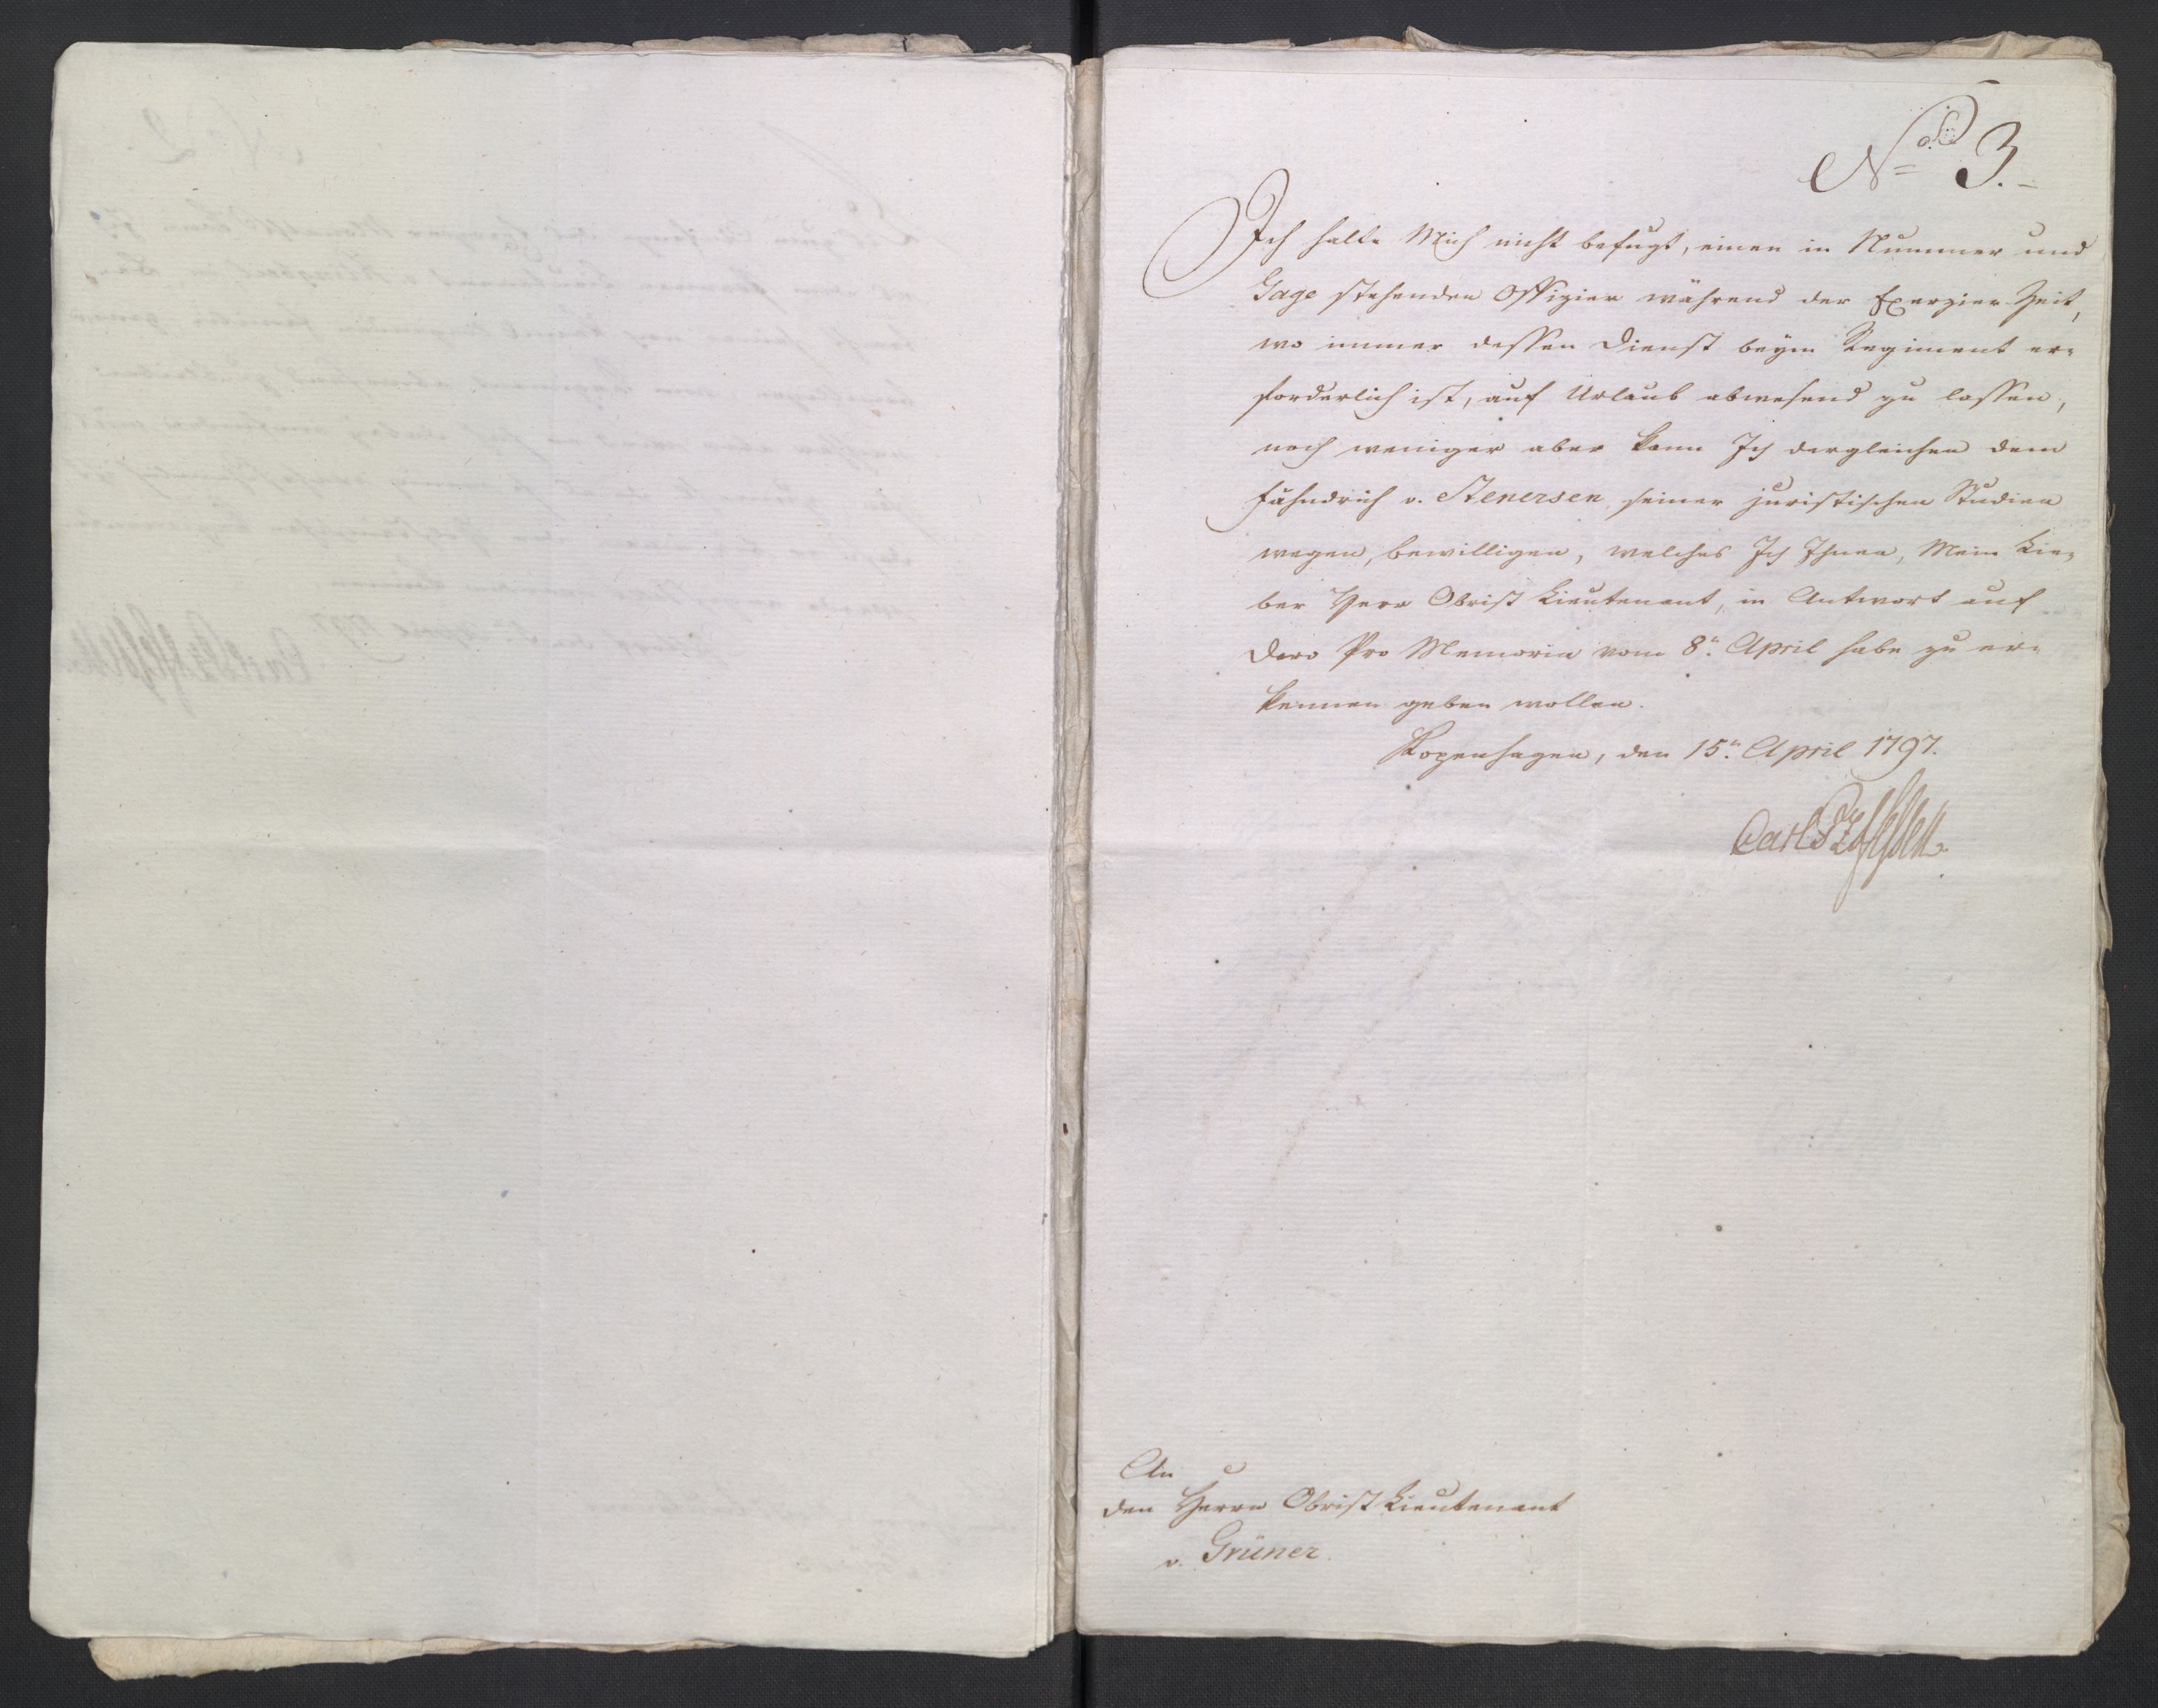 No 3.
Ich halte Mich nicht befugt, einen in Nummer und
Gage stehenden Offizier während der Exerzier-Zeit,
wo immer dessen Dienst beym Regiment er-
forderlich ist, auf Urlaub abwesend zu lassen,
noch weniger aber kann Ich dergleichen dem
Fähndrich v. Stenersen, seiner juristischen Studien
wegen, bewilligen, welches Ich Ihnen, Mein Lie-
ber Herr Obrist Lieutenant, in Antwort auf
Dero Pro Memoria vom 8n. April habe zu er-
kennen geben wollen.
Kopenhagen, den 15n. April 1797.
Carl PzHessen
An
den Herrn Obrist Lieutenant
v. Grüner